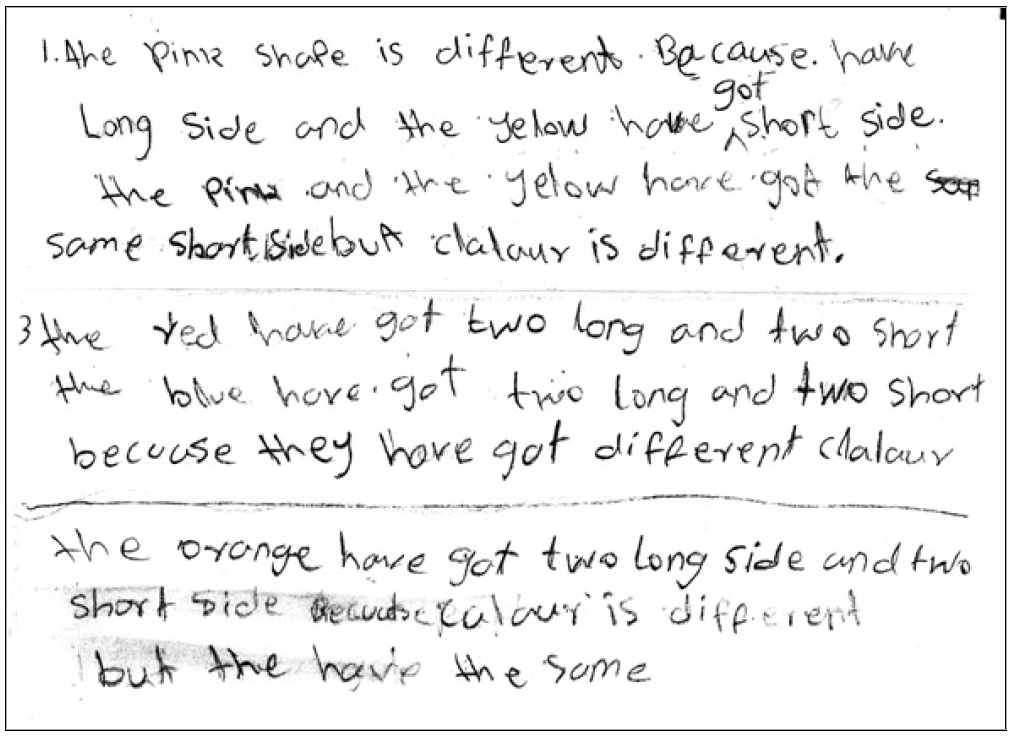 1. the pink shape is different. Bacause. have
got
Long side and the yelow have ^ short side.
the pink and the yelow have got the
same short side but clalour is different.
3 the red have got two long and two short
the blue have got two long and two short
becuose they have got different clalaur
the orange have got two long side and two
short side becuase calour is different
but the have the same